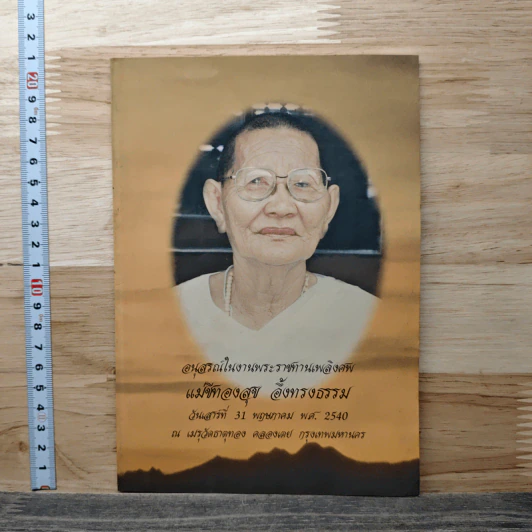 อนุสรณ์ในงานพระราชทานเพลิงศพ
แม่ชีทองสุข อึ้งทรงธรรม
วันเสาร์ที่ 31 พฤษภาคม พ.ศ. 2540
ณ เมรุวัดธาตุทอง คลองเตย กรุงเทพมหานคร
3
2
1
20
9
8
7
6
5
4
3
2
1
10
9
8
7
6
5
4
3
2
1